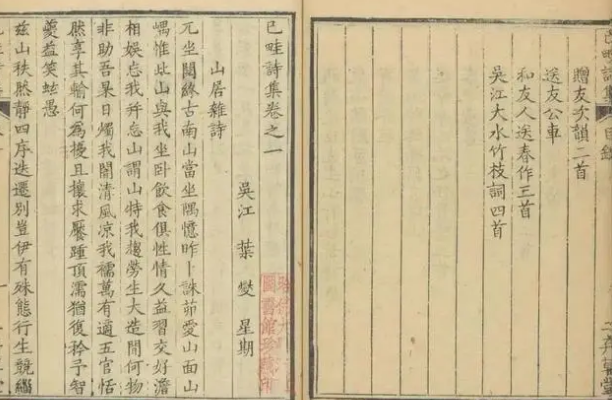 贈友次韻二首
送友公車
和友人送春作三首
吳江大水竹枝詞四首
已畦詩集卷之一
吳江 葉燮 星期
山居雜詩
兀坐閱緣古南山當坐隅憶昨卜誅茆愛山面山
嵎惟此山與我坐卧飲食俱性情久益習交好澹
相娛忘我并忘山謂山特我趨勞生大造間何物
非助吾杲日燭我闇清風凉我襦萬有適五官恬
然享其輸何為擾且攘求饜踵頂濡猶復矜予智
夔蚿笑蚿愚
兹山秩然靜四序迭遷別豈伊有殊態行生競繼